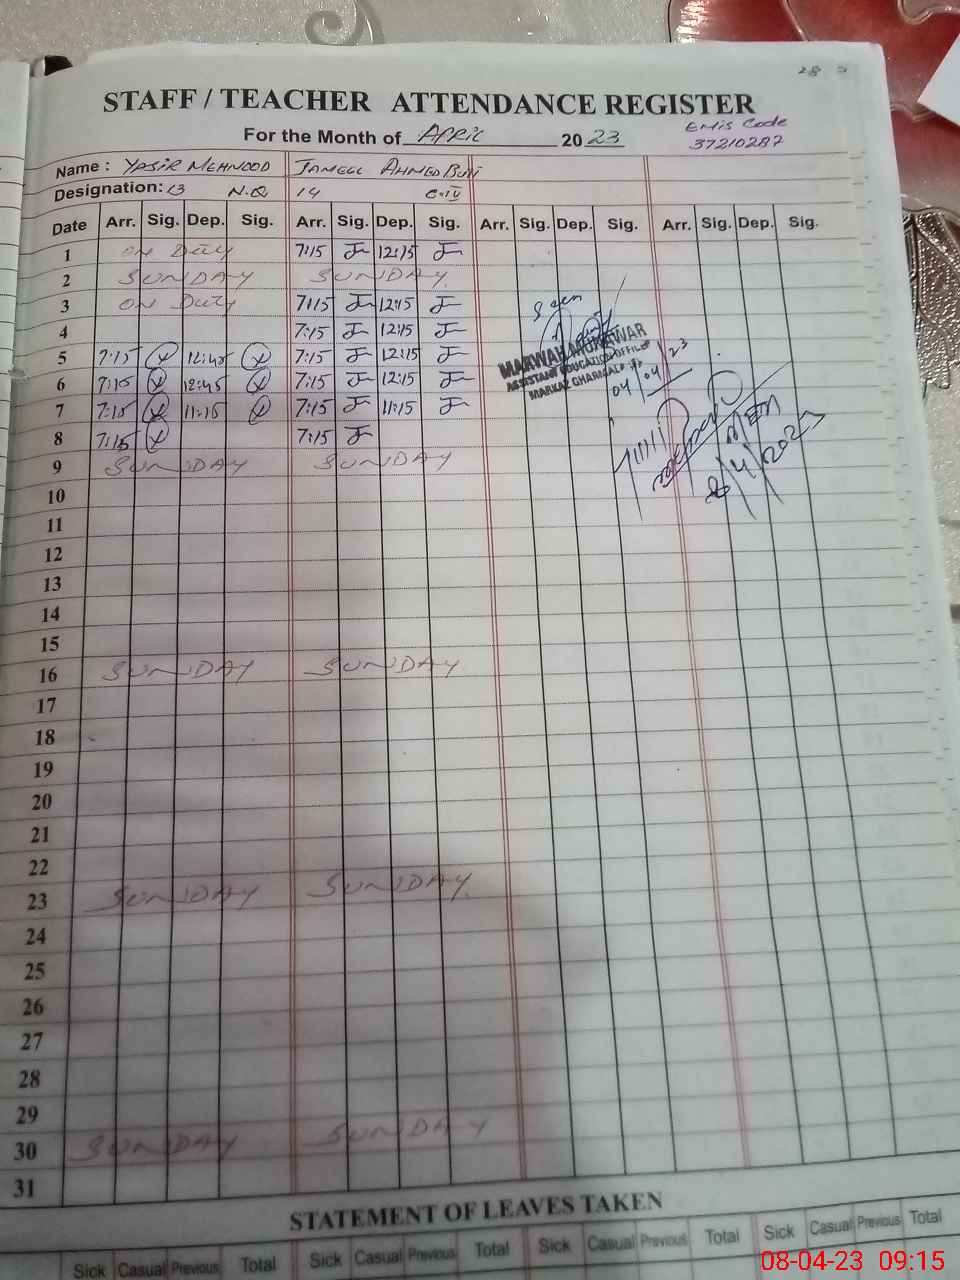 STAFF / TEACHER ATTENDANCE REGISTER
For the Month of APRIL 2023
EMIS Code
37210287
Name : YASIR MEHMOOD JAMEEL AHMED BUTT
Designation: 13 N.Q 14 C-IV
Date Arr. Sig. Dep. Sig. Arr. Sig. Dep. Sig. Arr. Sig. Dep. Sig. Arr. Sig. Dep. Sig.
1 ON Duty 7:15 12:15
2 SUNDAY SUNDAY
3 ON Duty 7:15 12:15
4 7:15 12:15
5 7:15 12:45 7:15 12:15
6 7:15 12:45 7:15 12:15
7 7:15 11:15 7:15 11:15
8 7:15 7:15
9 SUNDAY SUNDAY
10
11
12
13
14
15
16 SUNDAY SUNDAY
17
18
19
20
21
22
23 SUNDAY SUNDAY
24
25
26
27
28
29
30 SUNDAY SUNDAY
31
Seen
MARWAH MUNAWAR
ASSISTANT EDUCATION OFFICER
04/04/23
8/4/2023
STATEMENT OF LEAVES TAKEN
Sick Casual Previous Total Sick Casual Previous Total Sick Casual Previous Total Sick Casual Previous Total
08-04-23 09:15